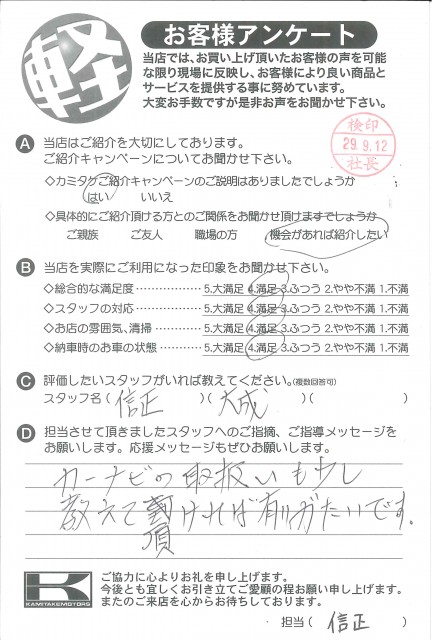 軽
お客様アンケート
当店では、お買い上げ頂いたお客様の声を可能
な限り現場に反映し、お客様により良い商品と
サービスを提供する事に努めています。
大変お手数ですが是非お声をお聞かせ下さい。
A 当店はご紹介を大切にしております。
ご紹介キャンペーンについてお聞かせ下さい。
検印
29.9.12
社長
◇カミタケご紹介キャンペーンのご説明はありましたでしょうか
はい いいえ
◇具体的にご紹介頂ける方とのご関係をお聞かせ頂けますでしょうか
ご親族 ご友人 職場の方 機会があれば紹介したい
B 当店を実際にご利用になった印象をお聞かせ下さい。
◇総合的な満足度・・・・・・・・・・・・・・ 5.大満足 4.満足 3.ふつう 2.やや不満 1.不満
◇スタッフの対応・・・・・・・・・・・・・・ 5.大満足 4.満足 3.ふつう 2.やや不満 1.不満
◇お店の雰囲気、清掃・・・・・・・・・・ 5.大満足 4.満足 3.ふつう 2.やや不満 1.不満
◇納車時のお車の状態・・・・・・・・・・ 5.大満足 4.満足 3.ふつう 2.やや不満 1.不満
C 評価したいスタッフがいれば教えてください。(複数回答可)
スタッフ名( 信正 )( 大成 )( )
D 担当させて頂きましたスタッフへのご指摘、ご指導メッセージを
お願いします。応援メッセージもぜひお願いします。
カーナビの取扱いも少し
教えて頂ければ有りがたいです。
K
KAMITAKEMOTORS
ご協力に心よりお礼を申し上げます。
今後とも宜しくお引き立てご愛顧の程お願い申し上げます。
またのご来店を心からお待ちしております。
担当( 信正 )